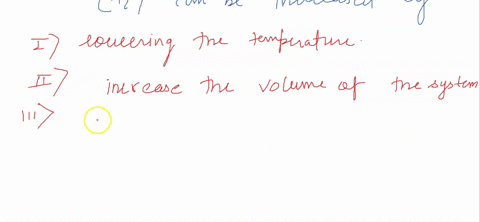 can be increased by
I) lowering the temperature.
II) increase the volume of the system
III)